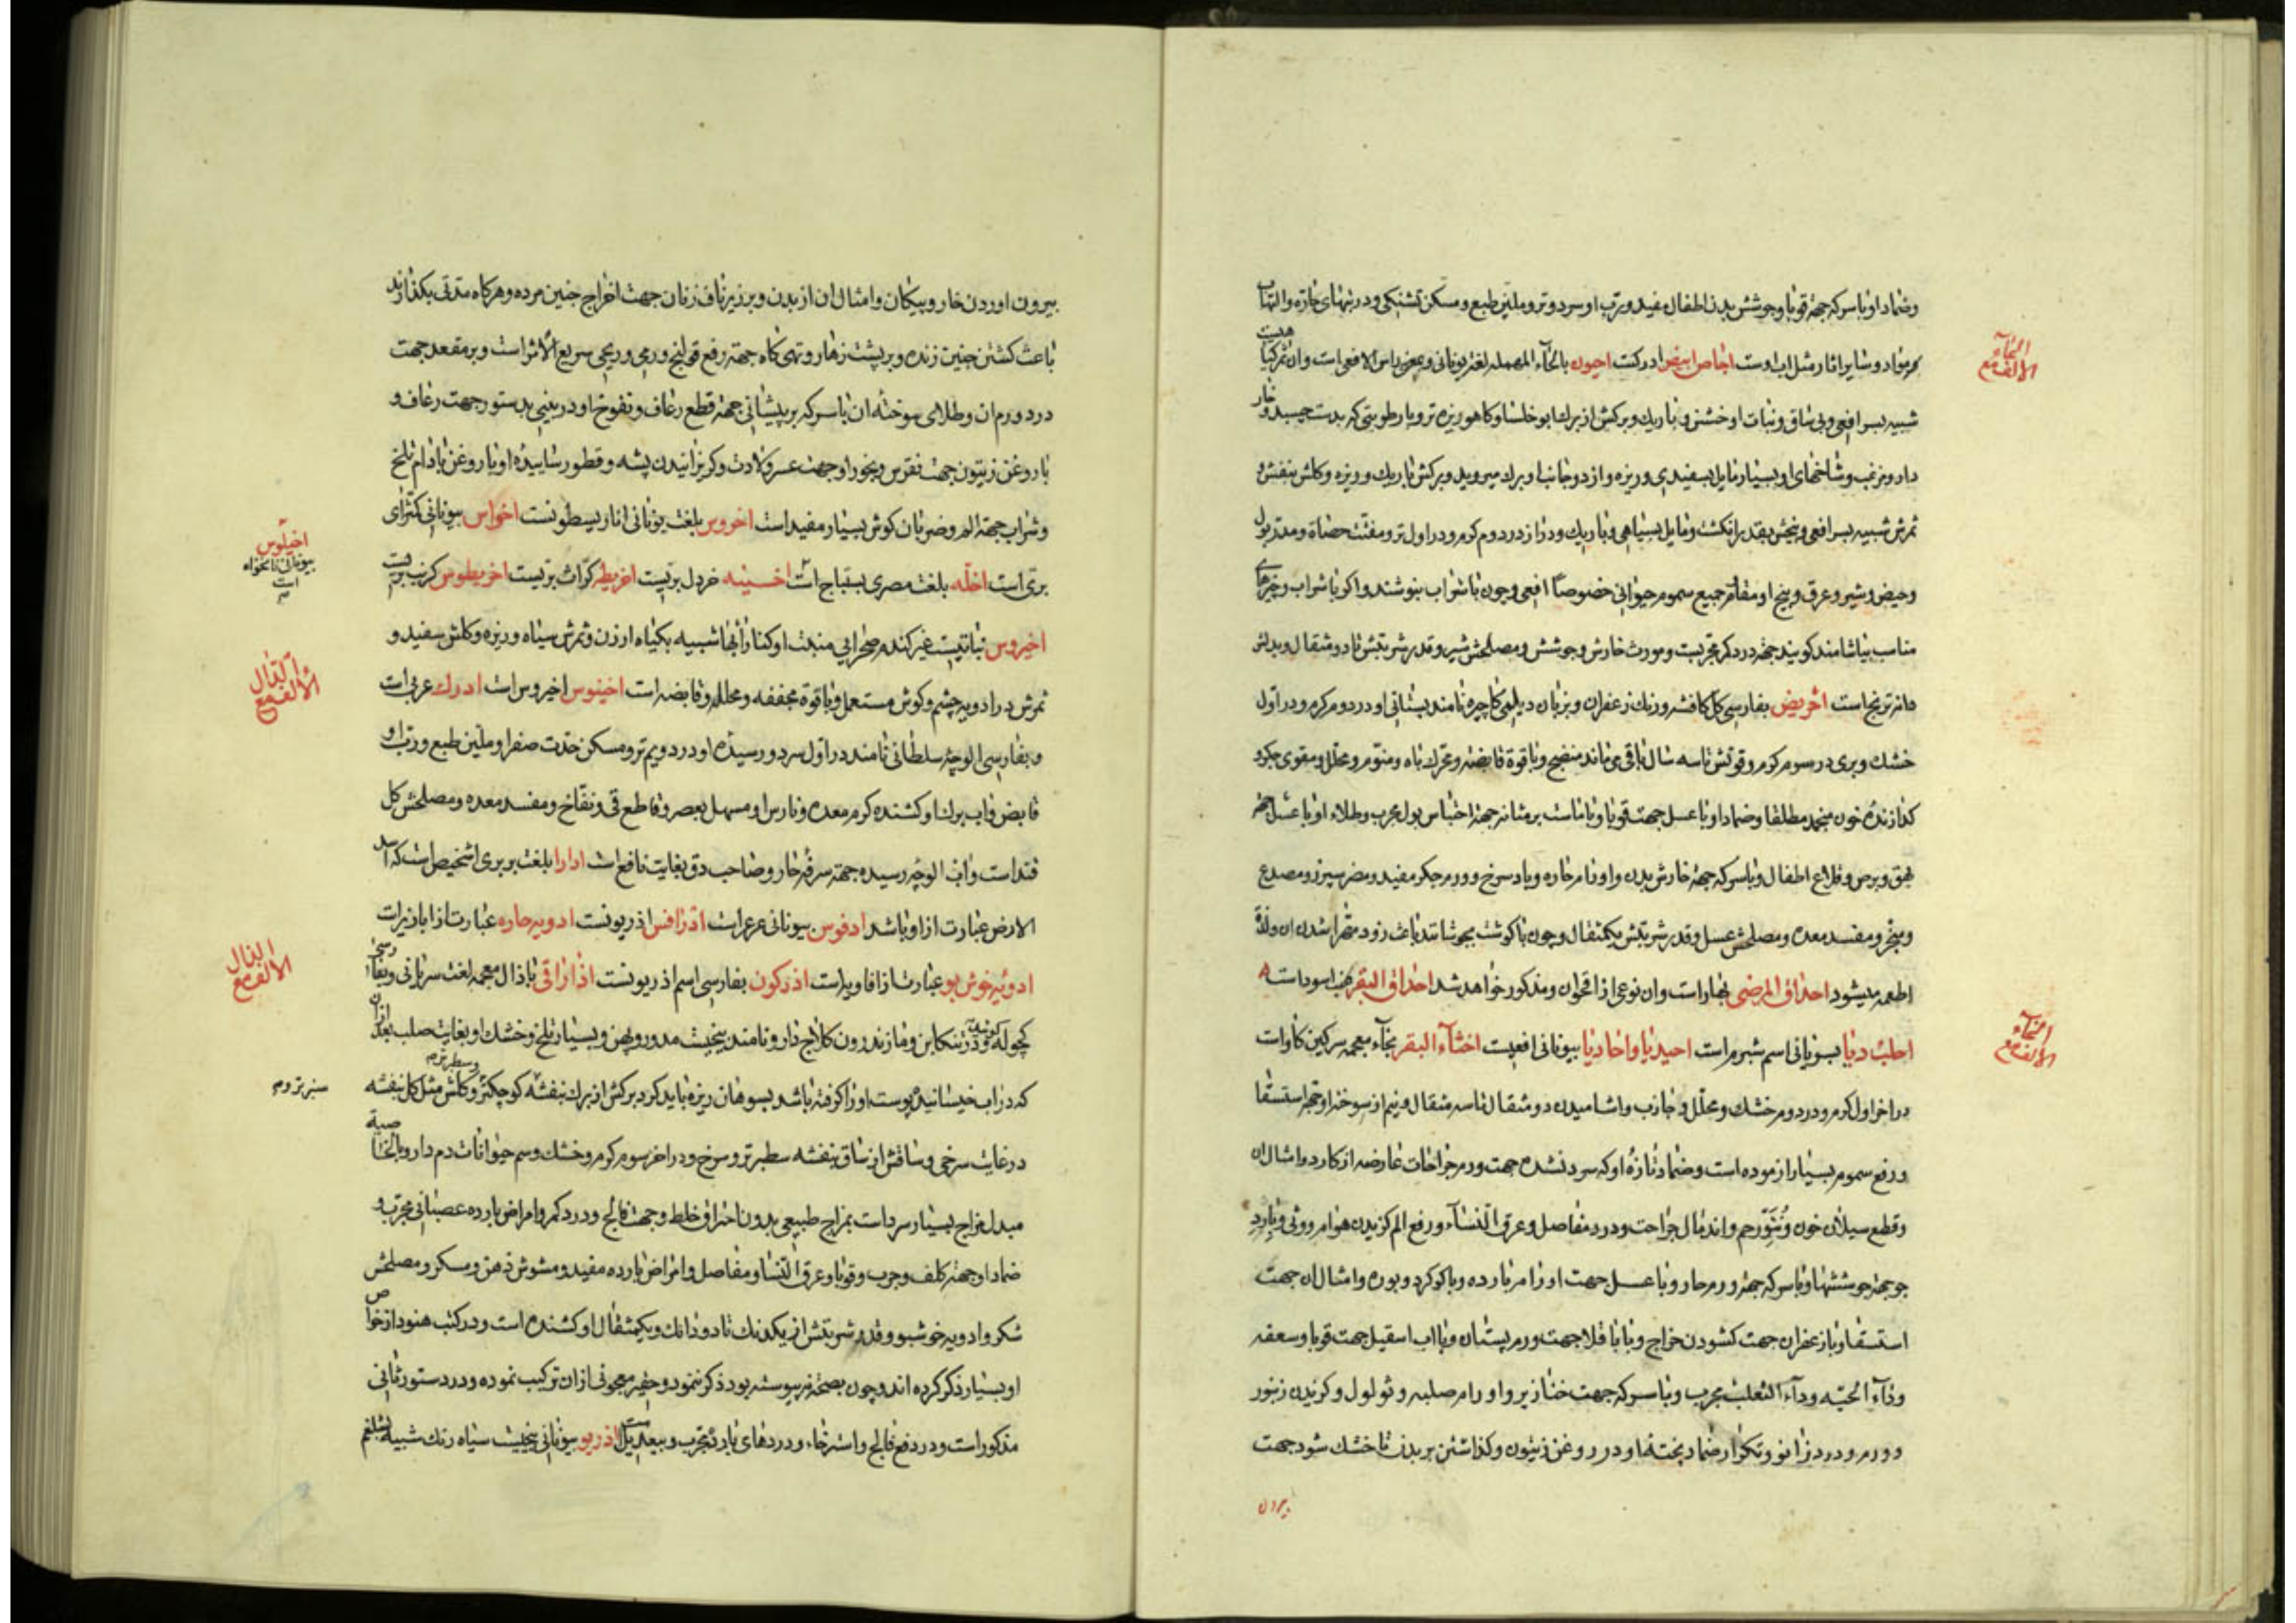 وضماد او با سرکه جهة قوبا و جوشش بدن اطفال مفید و رب او سرد و تر و ملین طبع و مسکن تشنکی و در تبهای حاره والتهاب
الحاء الالف مع
و سایر اثار مثل اب اوست اجاص ابیض ادرکست احیون بالحاء المهمله لغة یونانی و بمعنی راس الافعی است وان ثمر کیاهیست
شبیه بسر افعی و بی ساق و نبات او خشن و باریک و برکش از برک ابوخلسا و کاهو ریزه تر و با رطوبتی که بدست چسبد و خار
دار و مزغب و شاخهای او بسیار مایل بسفیدی و ریزه و از دو جانب او برک میروید و برکش باریک و ریزه و کلش بنفش و
ثمرش شبیه بسر افعی و بیخش بقدر انکشت و مایل بسیاهی و باریک و دراز در دوم کرم و در اول تر و مفتت حصاة و مدر بول
و حیض و شیر و عرق و بیخ او مقاوم جمیع سموم حیوانی خصوصاً افعی و چون با شراب بنوشند و اکر با شراب و چیزهای
مناسب بیاشامند کویند جهة درد کمر مجربست و مورث خارش و جوشش و مصلحش شیر و قدر شربتش تا دو مثقال و بدلش
دانه ترنج است احریض بفارسی کل کافشه و رنک زعفران و بزبان دیلمی کاچیره نامند بستانی او در دوم کرم و در اول
خشک و بری در سوم کرم و قوتش تا سه سال باقی میماند منضج و با قوة قابضه و محرک باه و منوم و محلل و مقوی جکر و
کدازنده خون منجمد مطلقا و ضماد او با عسل جهت قوبا و با ماست بر مثانه جهة احتباس بول مجرب و طلاء او با عسل جهة
بهق و برص و قلاع اطفال و با سرکه جهة خارش بدن و اورام حاره و باد سرخ و ورم جکر مفید و مضر سپرز و مصدع
و مبخر و مفسد معده و مصلحش عسل و قدر شربتش یکمثقال و چون با کوشت بجوشانند باعث زود مهرا شدن ان و لذة
اطعمه میشود احداق المرضی بهار است وان نوعی از اقحوان و مذکور خواهد شد احداق البقر عنب اسود است
احلب دیا بسریانی اسم شبرم است احیدیا و احادیا بیونانی افعیست اخثاء البقر بخاء معجمه سرکین کاو است
الخاء الالف مع
در اخر اول کرم و در دوم خشک و محلل و جاذب و اشامیدن دو مثقال تا سه مثقال و نیم از سوخته او جهة استسقا
و رفع سموم بسیار ازموده است و ضماد تازهٔ او که سرد نشده جهت ورم جراحات عارضه از کارد و امثال ان
و قطع سیلان خون و نتو رحم و اندمال جراحت و درد مفاصل و عرق النساء و رفع الم کزیدن هوام روونی و با ارد
جو جهة جوششها و با سرکه جهة ورم حار و با عسل جهت اورام بارده و با کوکرد و بوره و امثال ان جهت
استسقا و با زعفران جهت کشودن خراج و با باقلا جهت ورم پستان و با اب اسقیل جهت قوبا و سعفه
و داء الحیه و داء الثعلب مجرب و با سرکه جهت خنازیر و اورام صلبه و ثولول و کزیدن زنبور
و ورم و درد زانو و تکرار ضماد پختهٔ او در روغن زیتون و کذاشتن بر بدن تا خشک شود جهت
بیرون
بیرون اوردن خار و پیکان و امثال ان از بدن و بر زیر ناف زنان جهت اخراج جنین مرده و هرکاه مدتی بکذارند
باعث کشتن جنین زنده و بر پشت زهار و تهی کاه جهة رفع قولنج ورمی و ریحی سریع الأثر است و بر مقعد جهت
درد و ورم ان و طلای سوختهٔ ان با سرکه بر پیشانی جهة قطع رعاف و نفوخ او در بینی بدستور جهت رعاف و
با روغن زیتون جهت نقرس و بخور او جهت عسر ولادت و کریزانیدن پشه و قطور ساییدهٔ او با روغن بادام تلخ
و شراب جهة الم و ضربان کوش بسیار مفید است اخروس بلغت یونانی اناریسطونست اخواس بیونانی کمثرای
اخیلوس بیونانی نانخواه است م
بری است اخلّه بلغت مصری بسباج است اخسینه خردل بریست اخریطر کراث بریست اخریطوس کرنب بریست
اخیروس نباتیست غیر کندم صحرایی منبت او کنار آبها شبیه بکیاه ارزن و ثمرش سیاه و ریزه و کلش سفید و
ثمرش در ادویه چشم و کوش مستعمل و با قوة مجففه و محلله و قابضه است اخینوس اخیروس است ادرک عربی است
الدال الالف مع
و بفارسی الوچه سلطانی نامند در اول سرد و رسیدهٔ او در دویم تر و مسکن حدت صفرا و ملین طبع و رب او
قابض و اب برک او کشنده کرم معده و نارس او مسهل بعصر و قاطع قی و نفاخ و مفسد معده و مصلحش کل
قند است و اب الوچه رسیده جهة سرفه حار و صاحب دق بغایت نافع است ادارا بلغت بربری اشخیص است که اسد
الارض عبارت از او باشد ادفوس بیونانی عرعر است اذرافس اذریونست ادویه حاره عبارت از ابازیر است
ادویه خوش بو عبارت از افاویه است اذرکون بفارسی اسم اذریونست اذاراقی با ذال معجمه لغت سریانی و بفارسی
الذال الالف مع
کچوله کویند و در تنکابن و مازندرون کلاج دارو نامند بیخیست مدور و پهن و بسیار تلخ و خشک او بغایت صلب بعد ازان
که در اب خیسانیده پوست او را کرفته باشد بسوهان ریزه باید کرد برکش از برک بنفشه کوچکتر و سطبرتر م و کلش مثل کل بنفشه
سبزتر و م
در غایت سرخی و ساقش از ساق بنفشه سطبرتر و سرخ و در اخر سوم کرم و خشک و سم حیوانات دم دار و بالخاصیة
مبدل مزاج بسیار سرد است بمزاج طبیعی بدون احتراق خلط و جهت فالج و درد کمر و امراض بارده عصبانی مجرب و
ضماد او جهة کلف و جرب و قوبا و عرق النسا و مفاصل و امراض بارده مفید و مشوش ذهن و مسکر و مصلحش
شکر و ادویه خوشبو و قدر شربتش از یکدنک تا دو دانک و یکمثقال او کشنده است و در کتب هنود از خواص
او بسیار ذکر کرده اند و چون بصحة نپیوسته بود ذکر ننمود و حقیر معجونی ازان ترکیب نموده و در دستور ثانی
مذکور است و در دفع فالج و استرخاء و دردهای بارد مجرب و بیعدیل است اذریو بیونانی بیخیست سیاه رنک شبیه بشلغم